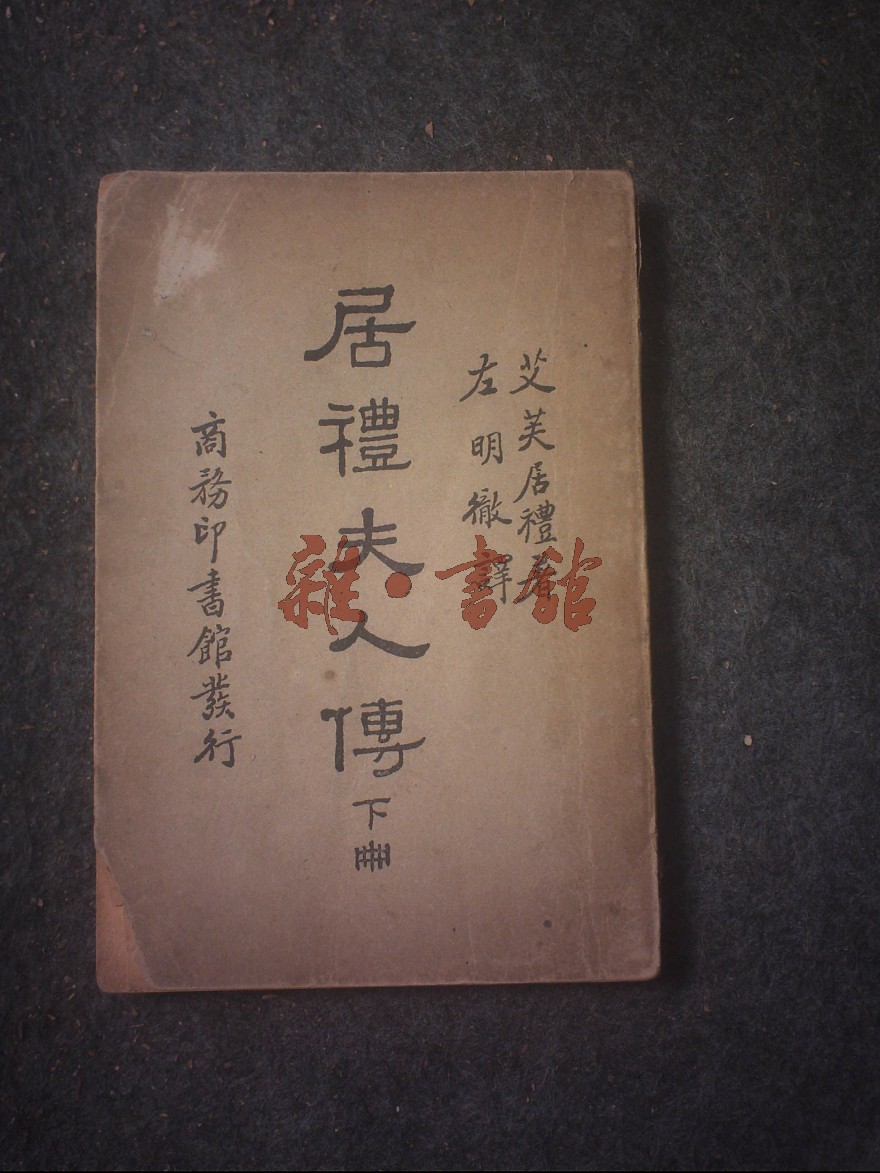 艾芙居禮著
左明徹譯
居禮夫人傳下冊
商務印書館發行
雜·書館